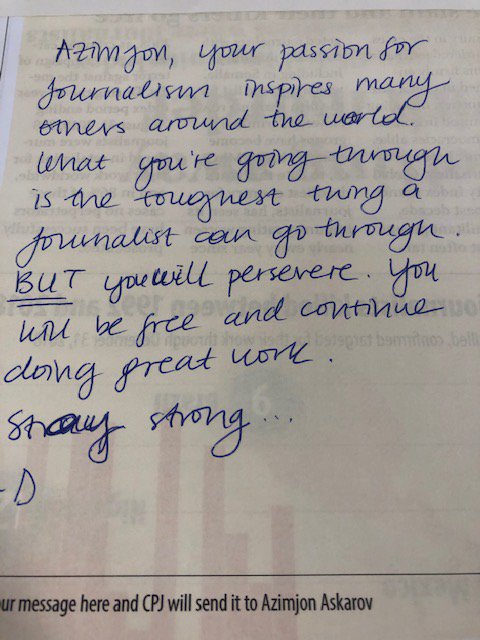 Azimjon, your passion for
journalism inspires many
others around the world.
What you're going through
is the toughest thing a
journalist can go through.
BUT you will persevere. You
will be free and continue
doing great work.
Stay strong...
- D
ur message here and CPJ will send it to Azimjon Askarov